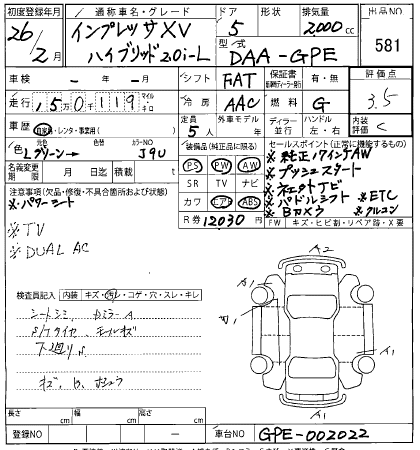 初度登録年月 通称車名・グレード ドア 形状 排気量 出品NO
26 / 2月 インプレッサXV ハイブリッド 2.0i-L 5 2000cc 581
型式 DAA-GPE
車検 － － 月 シフト FAT 保証書 有・無 評価点 3.5
走行 150119 マイル キロ 冷房 AAC 燃料 G
車歴 自家用・レンタ・事業用( ) 定員 5人 外車モデル ディーラー 並行 ハンドル 左・右 内装評価 C
色 元色 Lグリーン→ 色替 カラーNO J9U
装備品(純正品に限る) セールスポイント(正常に機能するもの)
名義変更期限 月 日 積載 t
PS PW AW
SR TV ナビ
カワ エアB ABS
R券 12030円
※純正17インチAW
※プッシュスタート
※社外ナビ
※パドルシフト ※ETC
※クルコン
FW キズ・ヒビ割・リペア跡・X要
注意事項(欠品・修復・不具合箇所および状態)
※パワーシート
※TV
※DUAL AC
検査員記入 内装 キズ・汚レ・コゲ・穴・スレ・キレ
シートシミ
S/Tタイヤ モールキズ
下廻りS
A2
A1
A1
A2
A1
長さ cm 幅 cm 高さ cm
登録NO － 車台NO GPE-002022